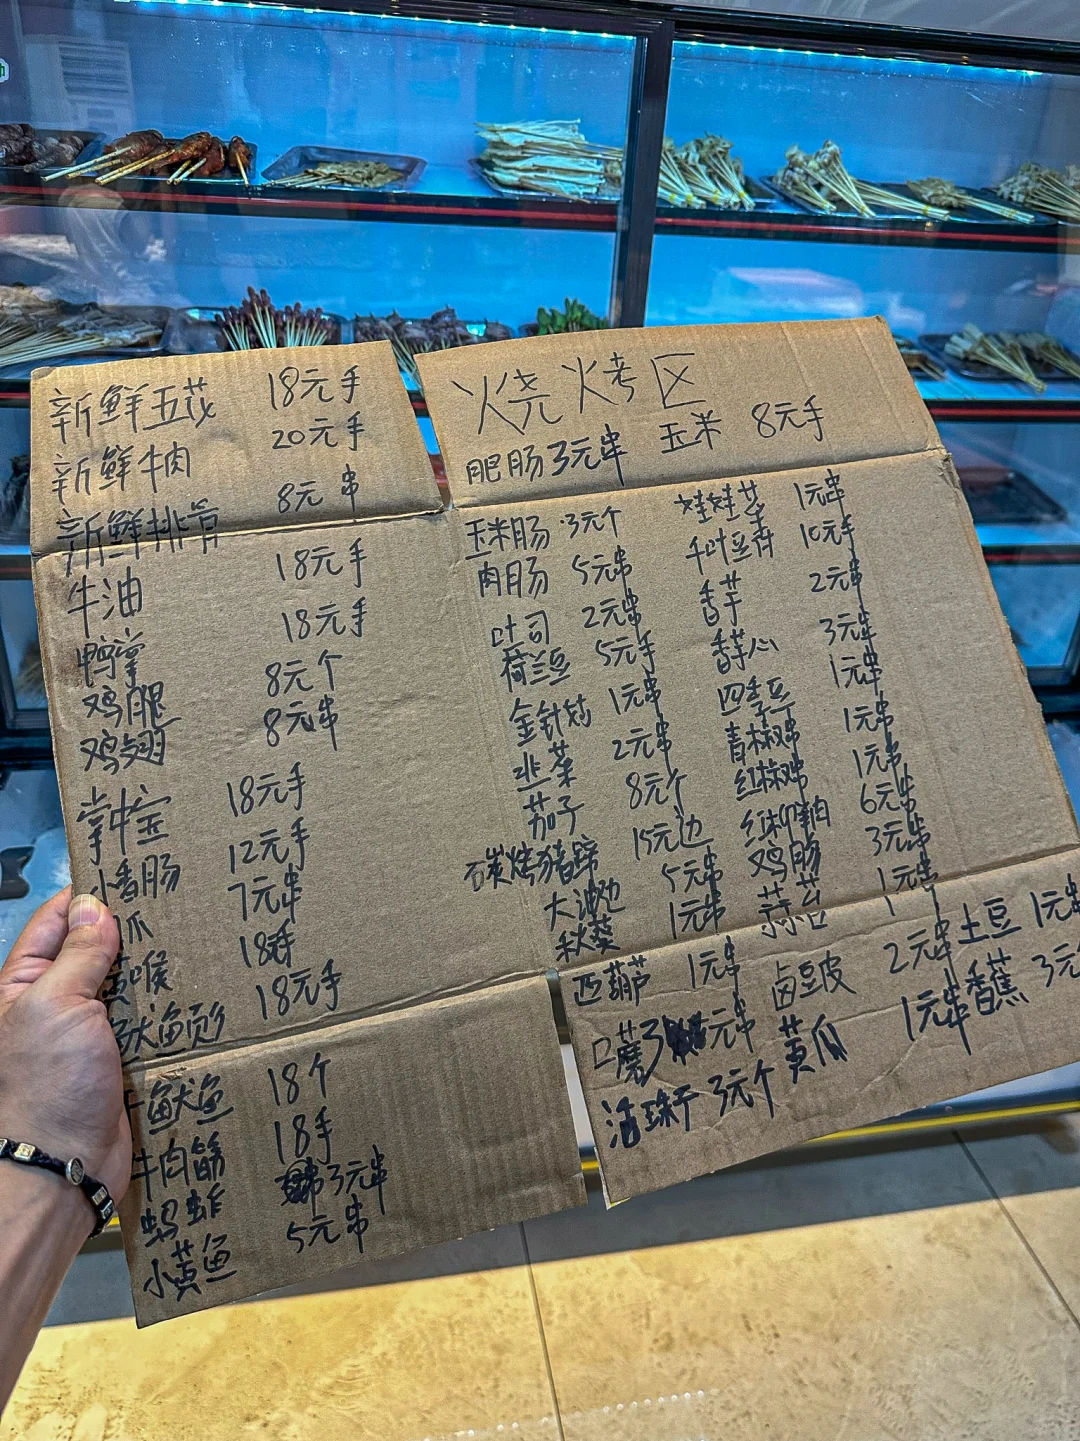 新鲜五花 18元手
新鲜牛肉 20元手
新鲜排骨 8元串
牛油 18元手
鸭掌 18元手
鸡腿 8元个
鸡翅 8元串
掌中宝 18元手
小香肠 12元手
爪 7元串
黄喉 18手
鱿鱼须 18元手
鱿鱼 18个
牛肉筋 18手
蚂蚱 3元串
小黄鱼 5元串
烧烤区
肥肠 3元串 玉米 8元手
玉米肠 3元个 娃娃菜 1元串
肉肠 5元串 千叶豆腐 10元手
吐司 2元串 香芋 2元串
荷兰豆 5元手 香芋心 3元串
金针菇 1元串 四季豆 1元串
韭菜 2元串 青椒串 1元串
茄子 8元个 红椒串 1元串
石炭烤猪蹄 15元边 红柳羊肉 6元串
大油边 5元串 鸡肠 3元串
秋葵 1元串 蒜苔 1元串
西葫芦 1元串 卤豆皮 2元串 土豆 1元串
口蘑 3元串 黄瓜 1元串 香蕉 3元
活珠子 3元个